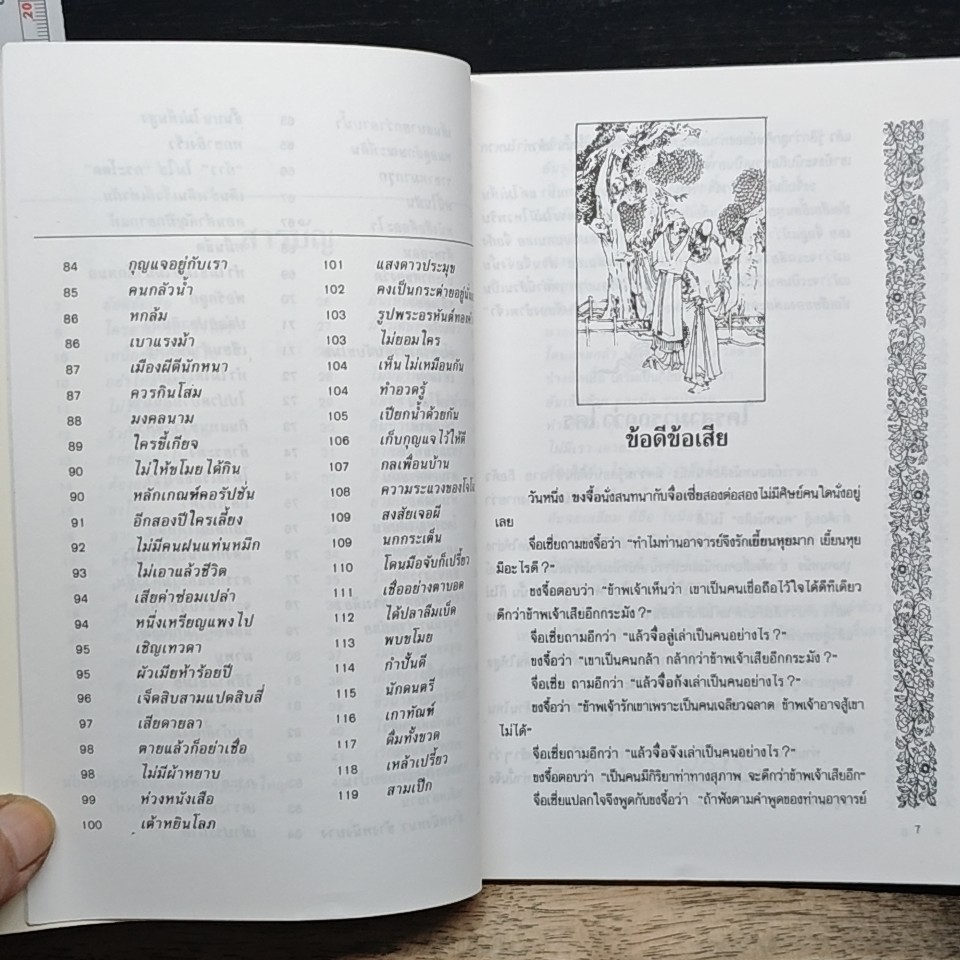 20
84 กุญแจอยู่กับเรา
85 คนกลัวน้ำ
86 หกล้ม
86 เบาแรงม้า
87 เมืองผีดีนักหนา
87 ควรกินโสม
88 มงคลนาม
89 ใครขี้เกียจ
90 ไม่ให้ขโมยได้กิน
90 หลักเกณฑ์คอรัปชั่น
91 อีกสองปีใครเลี้ยง
92 ไม่มีคนฝนแท่นหมึก
93 ไม่เอาแล้วชีวิต
94 เสียค่าซ่อมเปล่า
94 หนึ่งเหรียญแพงไป
95 เชิญเทวดา
95 ผัวเมียห้าร้อยปี
96 เจ็ดสิบสามแปดสิบสี่
97 เสียดายลา
98 ตายแล้วก็อย่าเชื่อ
98 ไม่มีผ้าหยาบ
99 ห่วงหนังเสือ
100 เต้าหยินโลภ
101 แสงดาวประมุข
102 คงเป็นกระต่ายอยู่
103 รูปพระอรหันต์ทองคำ
103 ไม่ยอมใคร
104 เห็นไม่เหมือนกัน
104 ทำอวดรู้
105 เปียกน้ำด้วยกัน
106 เก็บกุญแจไว้ให้ดี
107 กลเพื่อนบ้าน
108 ความระแวงของโจโฉ
109 สงสัยเจอผี
109 นกกระเต็น
110 โดนมือจับก็เปรี้ยว
111 เชื่ออย่างตาบอด
112 ได้ปลาลืมเบ็ด
113 พบขโมย
114 กำปั้นดี
115 นักดนตรี
116 เกาทัณฑ์
117 ดื่มทั้งขวด
118 เหล้าเปรี้ยว
119 สามเปิก
ข้อดีข้อเสีย
วันหนึ่ง ขงจื้อนั่งสนทนากับจือเซี่ยสองต่อสองไม่มีศิษย์คนใดนั่งอยู่
เลย
จื่อเซี่ยถามขงจื้อว่า "ทำไมท่านอาจารย์จึงรักเยี้ยนหุยมาก เยี้ยนหุย
มีอะไรดี ?"
ขงจื้อตอบว่า "ข้าพเจ้าเห็นว่า เขาเป็นคนเชื่อถือไว้ใจได้ดีทีเดียว
ดีกว่าข้าพเจ้าเสียอีกกระมัง ?"
จื่อเซี่ยถามอีกว่า "แล้วจื่อลู่เล่าเป็นคนอย่างไร ?"
ขงจื้อว่า "เขาเป็นคนกล้า กล้ากว่าข้าพเจ้าเสียอีกกระมัง ?"
จื่อเซี่ย ถามอีกว่า "แล้วจื่อก้งเล่าเป็นคนอย่างไร ?"
ขงจื้อว่า "ข้าพเจ้ารักเขาเพราะเป็นคนเฉลียวฉลาด ข้าพเจ้าอาจสู้เขา
ไม่ได้"
จื่อเซี่ยถามอีกว่า "แล้วจื่อจังเล่าเป็นคนอย่างไร ?"
ขงจื้อตอบว่า "เป็นคนมีกิริยาท่าทางสุภาพ จะดีกว่าข้าพเจ้าเสียอีก"
จื่อเซี่ยแปลกใจจึงพูดกับขงจื้อว่า "ถ้าฟังตามคำพูดของท่านอาจารย์
7